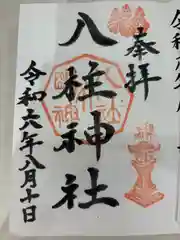 奉拝
八柱神社
令和六年八月十日